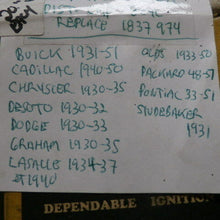 REPLACE 1837974
BUICK 1931-51
CADILLAC 1940-50
CHRYSLER 1930-35
DESOTO 1930-32
DODGE 1930-33
GRAHAM 1930-35
LASALLE 1934-37
& 1940
OLDS 1933-50
PACKARD 48-51
PONTIAC 33-51
STUDEBAKER
1931
DEPENDABLE IGNITI